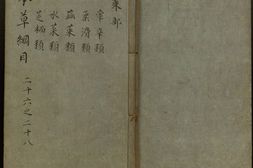 菜部
葷辛類
柔滑類
蓏菜類
水菜類
芝栭類
本草綱目
二十六之二十八